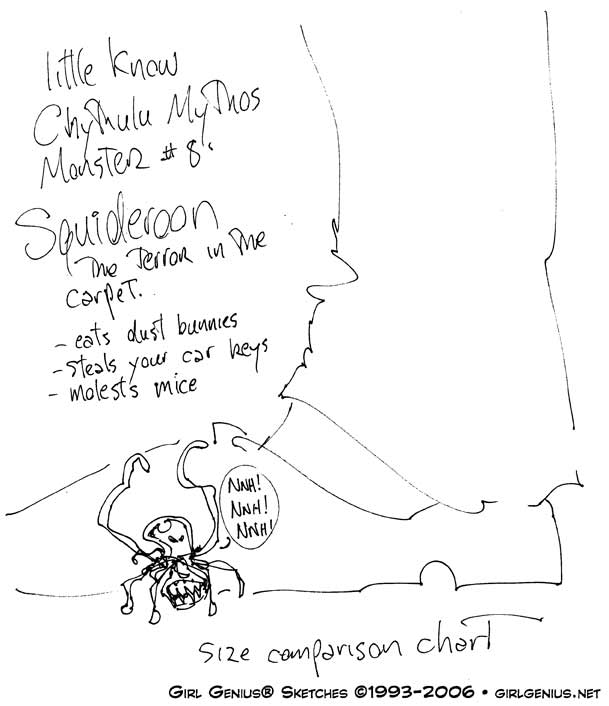 little know
Chythulu Mythos
Monster # 8.
Squideroon
The Terror in The
carpet..
- eats dust bunnies
- steals your car keys
- molests mice
NNH!
NNH!
NNH!
size comparison chart
GIRL GENIUS® SKETCHES ©1993-2006 • GIRLGENIUS.NET